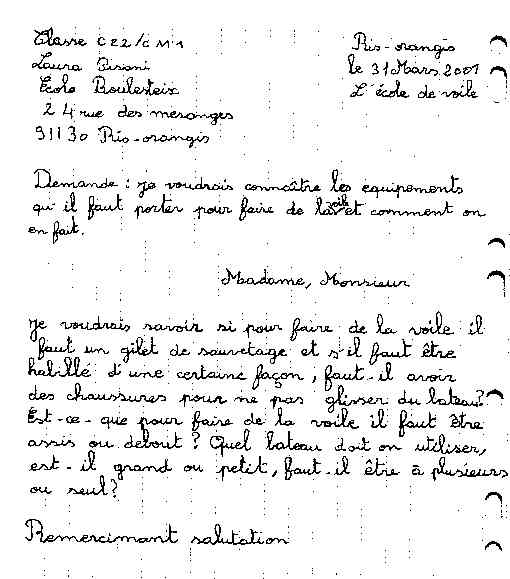 Classe CE2/CM1
Ris-orangis
Laura Pisani
le 31 Mars 2001
Ecole Boulesteix
L'école de voile
24 rue des mesanges
91130 Ris-orangis
Demande : je voudrais connaître les equipements
qu'il faut porter pour faire de la voile et comment on
en fait.
Madame, Monsieur
Je voudrais savoir si pour faire de la voile il
faut un gilet de sauvetage et s'il faut être
habillé d'une certaine façon, faut-il avoir
des chaussures pour ne pas glisser du bateau?
Est-ce-que pour faire de la voile il faut être
assis ou debout? Quel bateau doit on utiliser,
est-il grand ou petit, faut-il être à plusieurs
ou seul?
Remercimant salutation